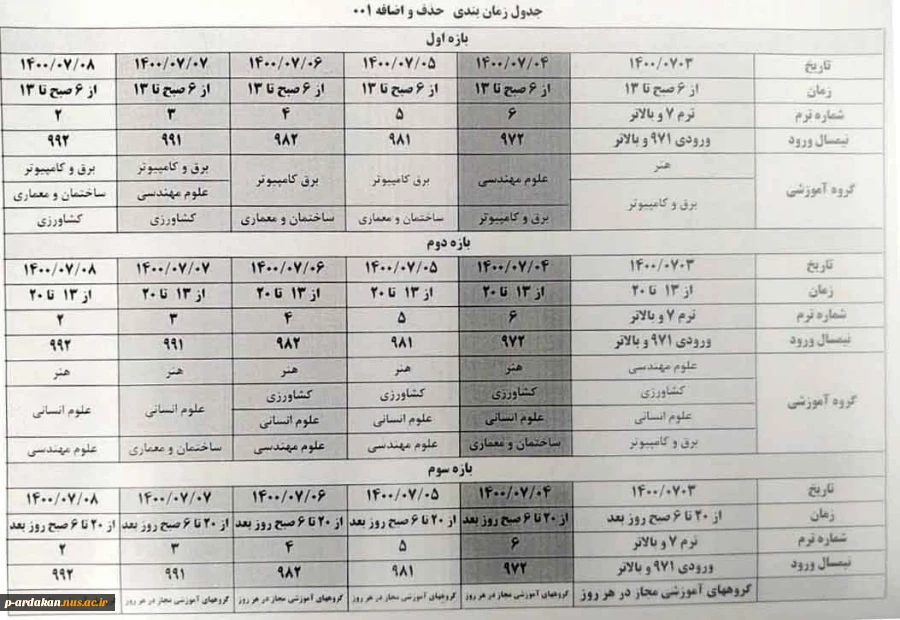 جدول زمان بندی حذف و اضافه ۰۰۱
بازه اول
تاریخ ۱۴۰۰/۰۷۰۳ ۱۴۰۰/۰۷/۰۴ ۱۴۰۰/۰۷/۰۵ ۱۴۰۰/۰۷/۰۶ ۱۴۰۰/۰۷/۰۷ ۱۴۰۰/۰۷/۰۸
زمان از ۶ صبح تا ۱۳ از ۶ صبح تا ۱۳ از ۶ صبح تا ۱۳ از ۶ صبح تا ۱۳ از ۶ صبح تا ۱۳ از ۶ صبح تا ۱۳
شماره ترم ترم ۷ و بالاتر ۶ ۵ ۴ ۳ ۲
نیمسال ورود ورودی ۹۷۱ و بالاتر ۹۷۲ ۹۸۱ ۹۸۲ ۹۹۱ ۹۹۲
گروه آموزشی هنر علوم مهندسی برق و کامپیوتر برق کامپیوتر برق و کامپیوتر برق و کامپیوتر
برق و کامپیوتر علوم مهندسی ساختمان و معماری
برق و کامپیوتر ساختمان و معماری ساختمان و معماری کشاورزی کشاورزی
بازه دوم
تاریخ ۱۴۰۰/۰۷۰۳ ۱۴۰۰/۰۷/۰۴ ۱۴۰۰/۰۷/۰۵ ۱۴۰۰/۰۷/۰۶ ۱۴۰۰/۰۷/۰۷ ۱۴۰۰/۰۷/۰۸
زمان از ۱۳ تا ۲۰ از ۱۳ تا ۲۰ از ۱۳ تا ۲۰ از ۱۳ تا ۲۰ از ۱۳ تا ۲۰ از ۱۳ تا ۲۰
شماره ترم ترم ۷ و بالاتر ۶ ۵ ۴ ۳ ۲
نیمسال ورود ورودی ۹۷۱ و بالاتر ۹۷۲ ۹۸۱ ۹۸۲ ۹۹۱ ۹۹۲
گروه آموزشی علوم مهندسی هنر هنر هنر هنر هنر
کشاورزی کشاورزی کشاورزی کشاورزی علوم انسانی علوم انسانی
علوم انسانی علوم انسانی علوم انسانی علوم انسانی
برق و کامپیوتر ساختمان و معماری علوم مهندسی علوم مهندسی ساختمان و معماری علوم مهندسی
بازه سوم
تاریخ ۱۴۰۰/۰۷۰۳ ۱۴۰۰/۰۷/۰۴ ۱۴۰۰/۰۷/۰۵ ۱۴۰۰/۰۷/۰۶ ۱۴۰۰/۰۷/۰۷ ۱۴۰۰/۰۷/۰۸
زمان از ۲۰ تا ۶ صبح روز بعد از ۲۰ تا ۶ صبح روز بعد از ۲۰ تا ۶ صبح روز بعد از ۲۰ تا ۶ صبح روز بعد از ۲۰ تا ۶ صبح روز بعد از ۲۰ تا ۶ صبح روز بعد
شماره ترم ترم ۷ و بالاتر ۶ ۵ ۴ ۳ ۲
نیمسال ورود ورودی ۹۷۱ و بالاتر ۹۷۲ ۹۸۱ ۹۸۲ ۹۹۱ ۹۹۲
گروه آموزشی گروههای آموزشی مجاز در هر روز گروههای آموزشی مجاز در هر روز گروههای آموزشی مجاز در هر روز گروههای آموزشی مجاز در هر روز گروههای آموزشی مجاز در هر روز گروههای آموزشی مجاز در هر روز
p-ardakan.nus.ac.ir